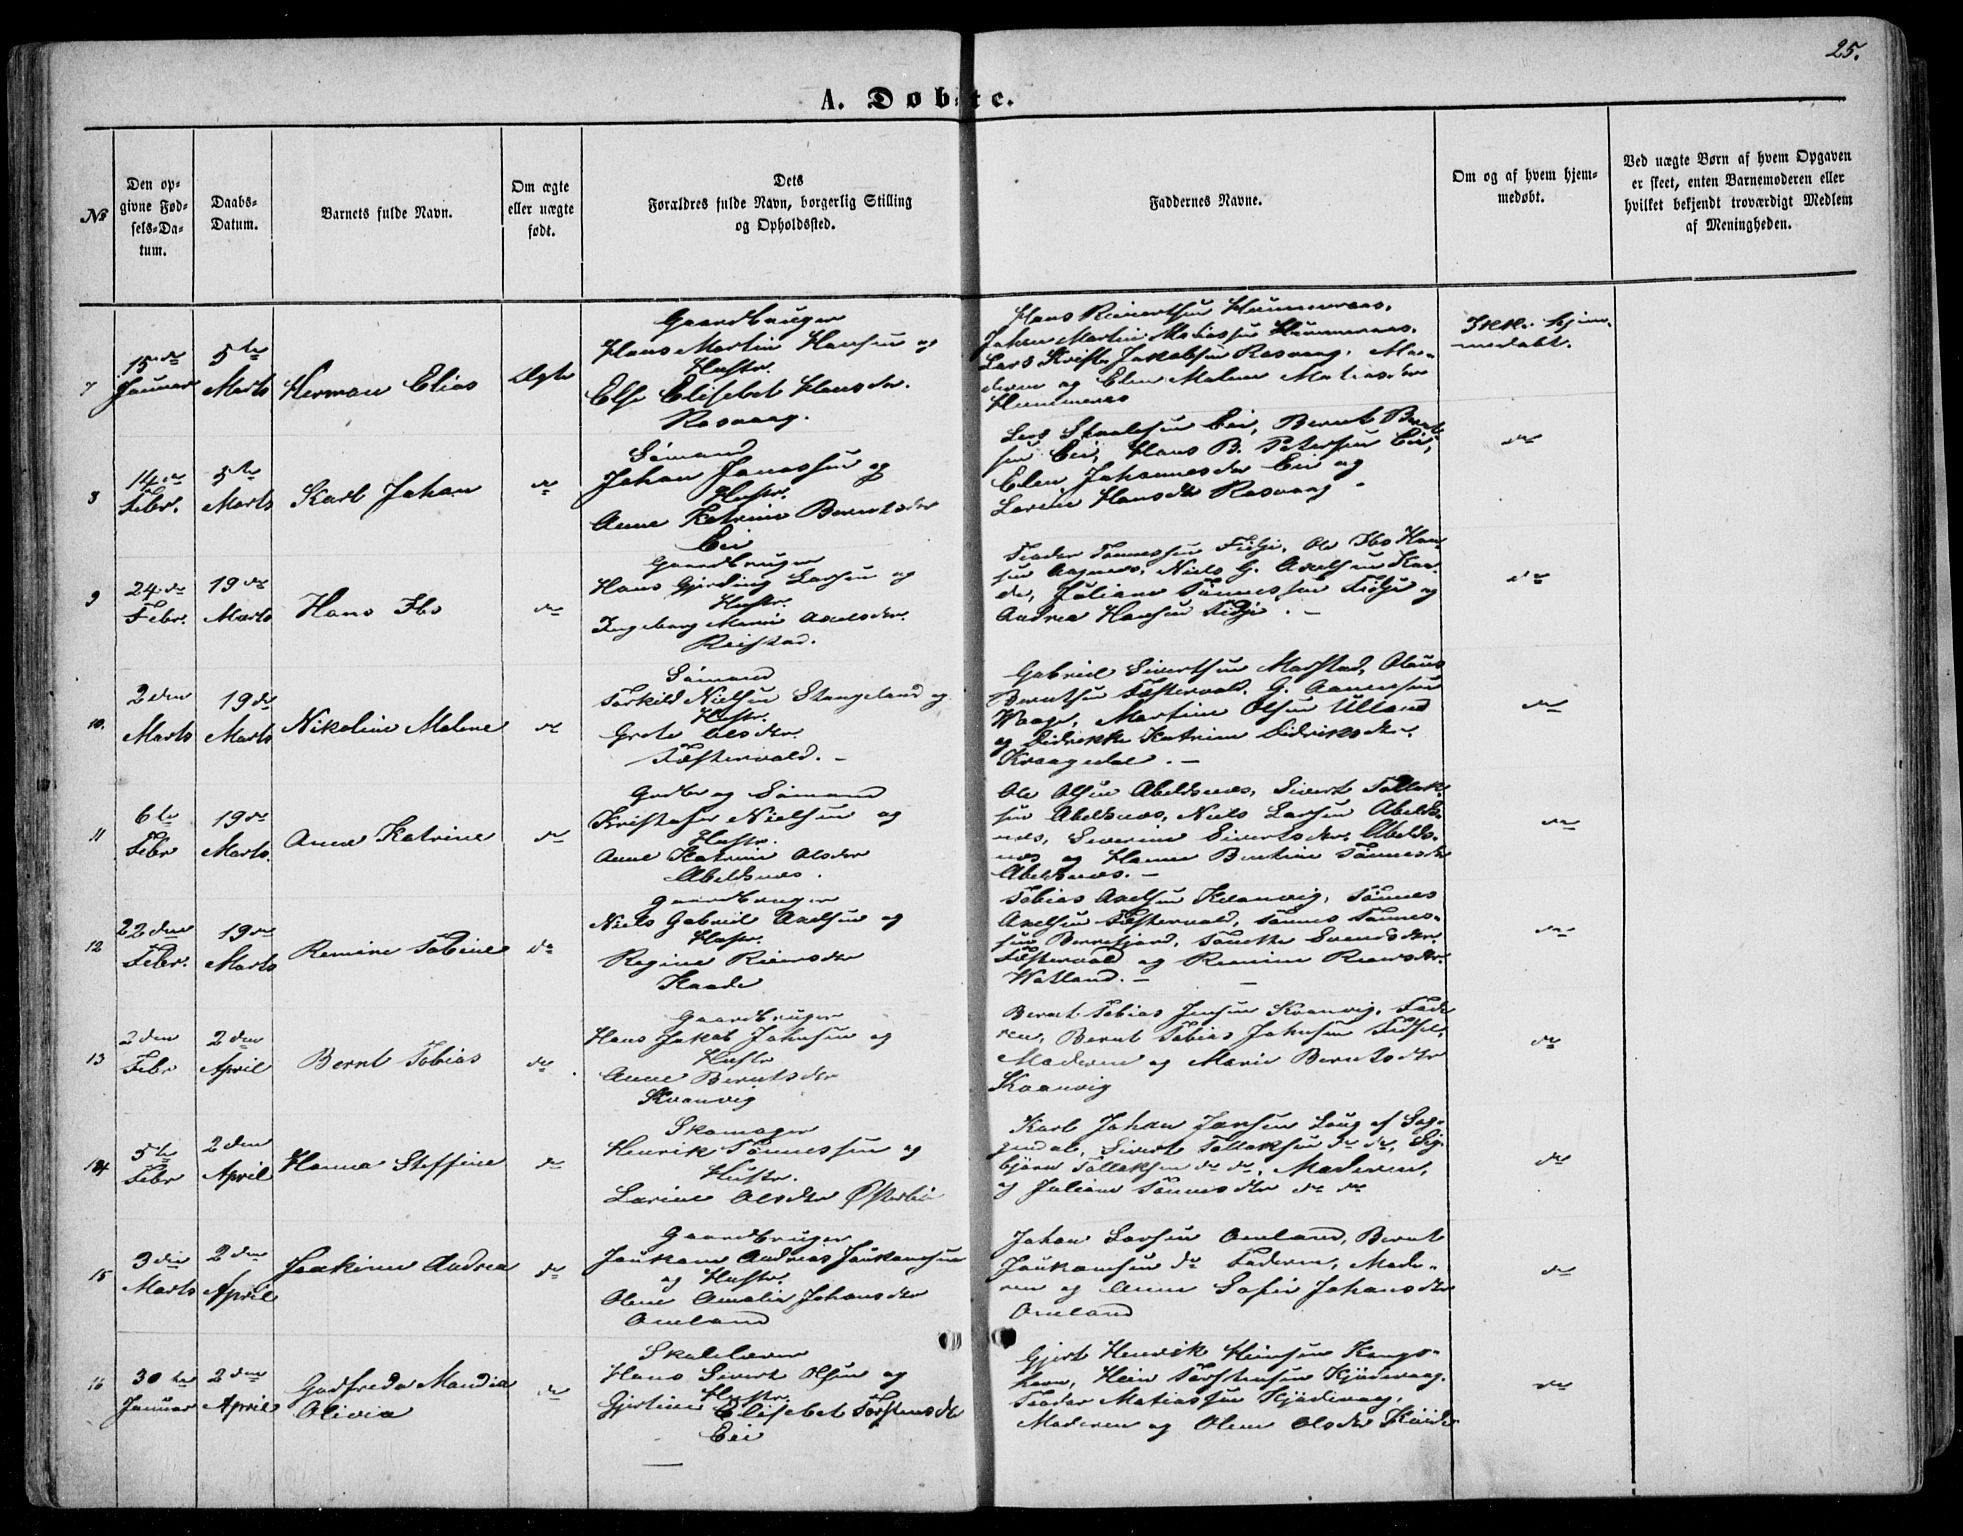 25.
A. Døbte.
№
Den opgivne Fødsels-Datum.
Daabs-Datum.
Barnets fulde Navn.
Om ægte eller uægte født.
Dets Forældres fulde Navn, borgerlig Stilling og Opholdssted.
Faddernes Navne.
Om og af hvem hjemmedøbt.
Ved uægte Børn af hvem Opgaven er skeet, enten Barnemoderen eller hvilket bekjendt troværdigt Medlem af Meningheden.
7
15de
Januar
5te
Marts
Herman Elias
Ægte
Gaardbruger
Hans Martin Hansen og
Hustr.
Else Elisebet Hansdr.
Rasvaag.
Hans Reinertsen Hummeraas,
Johan Martin Matiassen
Lars Jakobsen Rasvaag, Mo-
deren og Elen Malene Matiasdr
Ikke hjem-
medøbt.
8
14de
Febr.
5te
Marts
Karl Johan
do
Sømand
Johan Jonassen og
Hustr.
Anne Katrine Berntsdr
Eie
Lars Eie, Bernt Bernt-
sen Eie, Hans B. Petersen Eie,
Elen Johannesdr Eie og
Larine Hansdr Rasvaag
do
9
24de
Febr.
19de
Marts
Hans Ibs
do
Gaardbruger
Hans Gjerding Larsen og
Hustr.
Ingeborg Marie Axelsdr.
Reistad.
Teodor Tønnessen Ole Ibs Han-
sen Niels G. Axelsen Kaa-
de, Juliane Tønnessen og
Andrea Hansen
do
10.
2den
Marts
19de
Marts
Nikoline Malene
do
Sømand
Torkild Nielsen Stangeland og
Hustr.
Grete Olsdtr.
Fæstervold.
Gabriel Sivertsen Marstad, Olaus
Berntsen Fæstervold, G. Aanensen
Waage, Martine Olsen Ulland
og Didrikke Katrine Didriksdtr.
Kraagedal.
do
11
6te
Febr
19de
Marts.
Anne Katrine
do
og Sømand
Kristofer Nielsen og
Hustr.
Anne Katrine Olsdtr
Abelsnæs.
Ole Olsen Abelsnæs, Sivert Tollak-
sen Abelsnæs, Niels Larsen Abels-
næs, Severine Sivertsdtr. Abels-
næs og Hanne Bertine Tønnesdtr
Abelsnæs.
do
12
22den
Febr.
19de
Marts
Remine Tobine
do
Gaardbruger
Niels Gabriel Axelsen og
Hustr.
Regine Reiersdtr
Kaade
Tobias Axelsen Kvanvig, Tønnes
Axelsen Fæstervold, Tønnes Tønnes-
sen Berrefjord, Tønette Svendsdtr.
Fæstervold og Remine Reiersdtr.
Watland.
do
13
2den
Febr
2den
April
Bernt Tobias
do
Gaardbruger
Hans Jakob Johnsen og
Hustr
Anne Berntsdtr
Kvanvig
Bernt Tobias Jensen Kvanvig, Fade-
ren, Bernt Tobias Johnsen
Moderen og Marie Berntsdtr
Kvanvig
do
14
5te
Febr
2den
April
Hanna Steffine
do
Skomager
Henrik Tønnessen og
Hustr.
Larine Olsdtr Østebø
Karl Johan Jansen Loug af Sog-
gendal, Sivert Tollaksen do do, Sig-
bjørn Tollaksen do do, Moderen,
og Juliane Tønnesdtr do do
do
15
3die
Marts
2den
April
Joakime Andrea
do
Gaardbruger
Joakam Andreas Joakamsen
og Hustr.
Olene Amalie Johansdtr
Omland
Johan Larsen Omland, Bernt
Joakamsen do Faderen, Mode-
ren og Anne Sofie Johansdtr
Omland
do
16
30te
Januar
2den
April
Gudfreda Mandia
Olivia
do
Skolelærer
Hans Sivert Olsen og
Hustr.
Gjertine Elisebet Torstensdtr
Eie
Gjert Henrik Heinsen Kongs-
havn, Hein Torstensen
Teodor Matiassen
Moderen og Olene Olsdtr
do